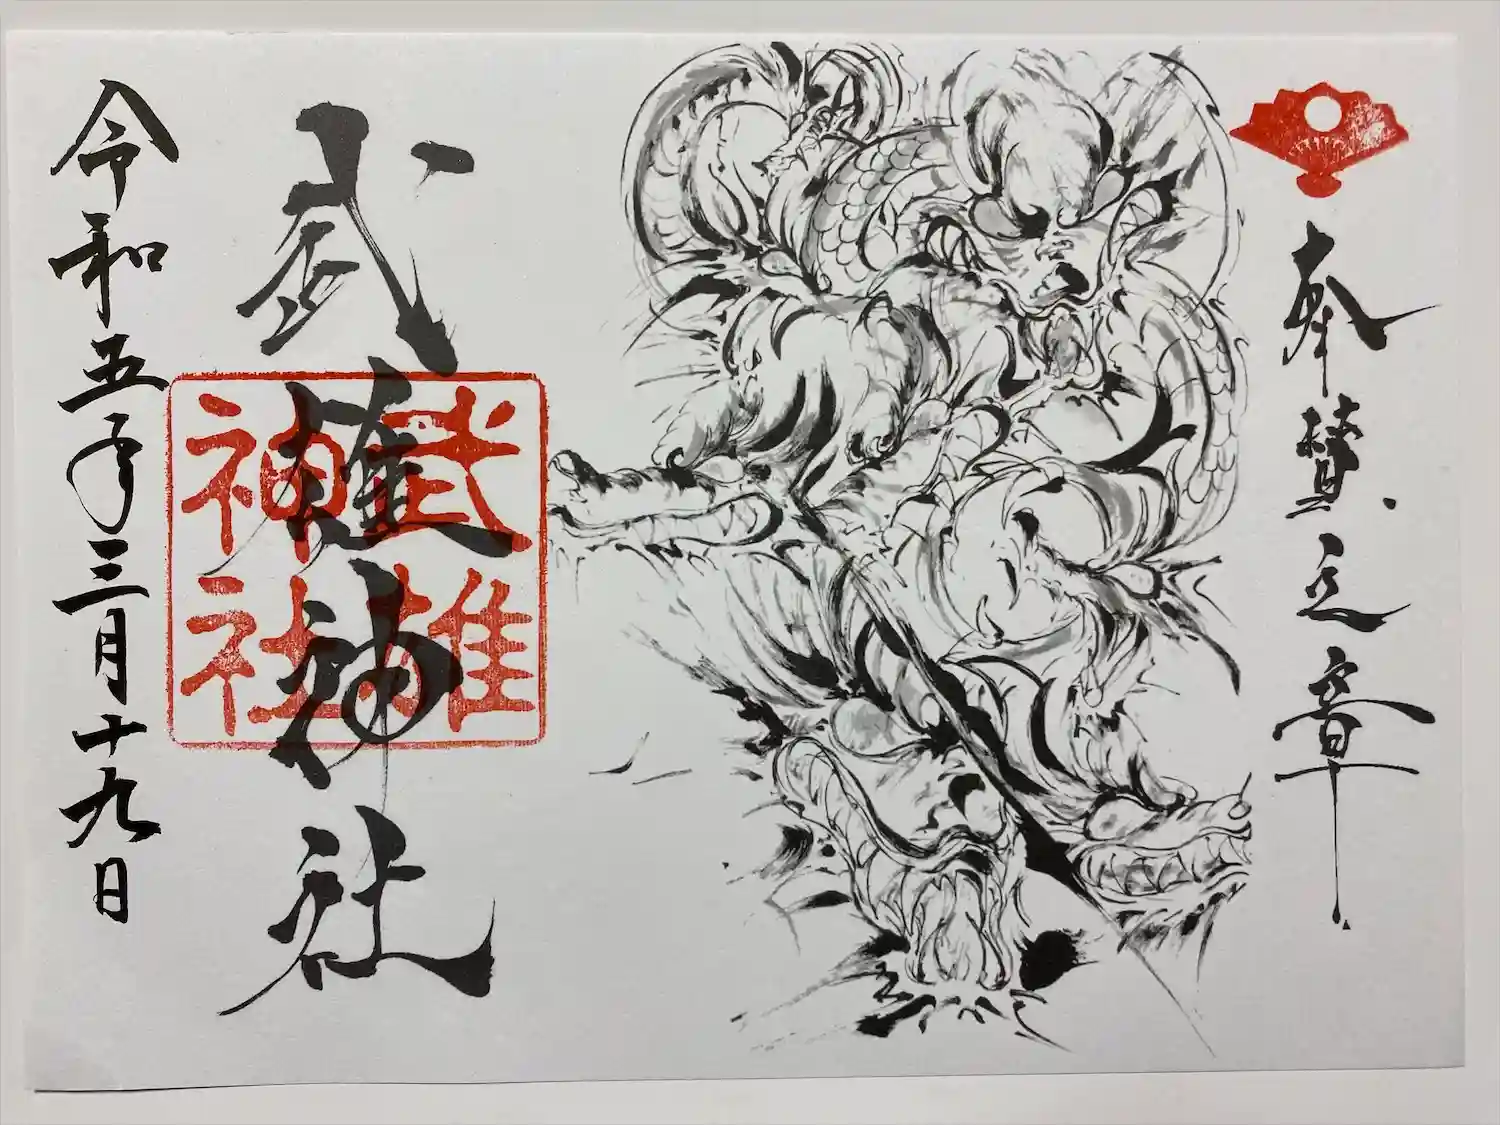 奉賛之章
武雄神社
武雄神社
令和五年三月十九日